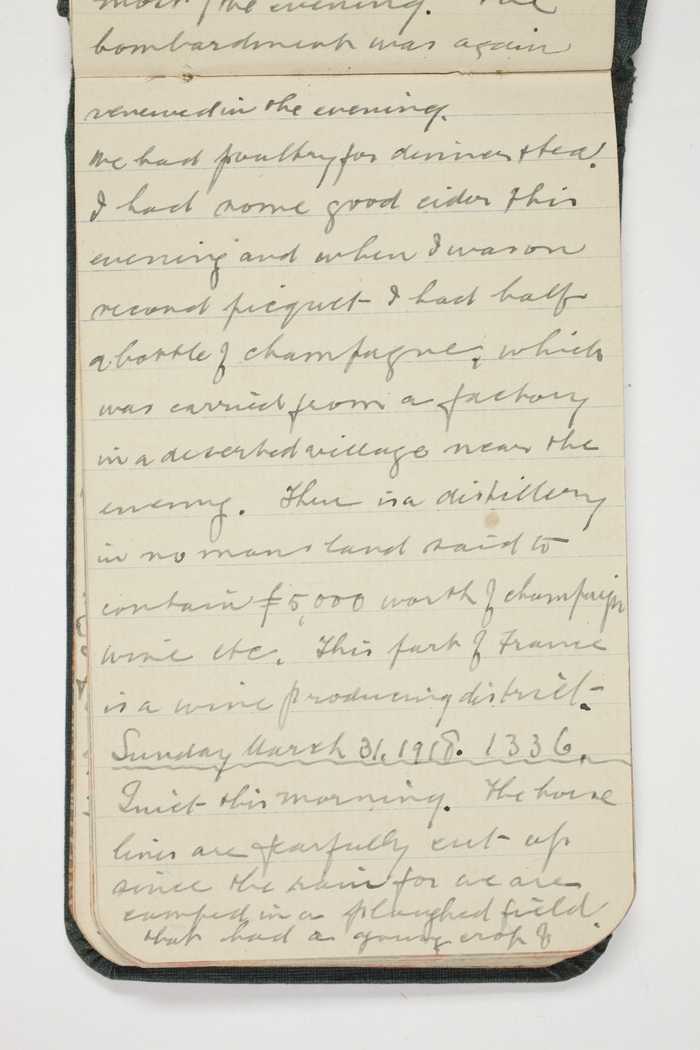 most of the evening. The
bombardment was again
renewed in the evening.
We had poultry for dinner & tea.
I had some good cider this
evening and when I was on
second picquet I had half
a bottle of champagne, which
was carried from a factory
in a deserted village near the
enemy. There is a distillery
in no mans land said to
contain £5,000 worth of champaign
wine etc. This part of France
is a wine producing district.
Sunday March 31. 1918. 1336.
Quiet this morning. The horse
lines are fearfully cut up
since the rain for we are
camped in a ploughed field
that had a young crop of